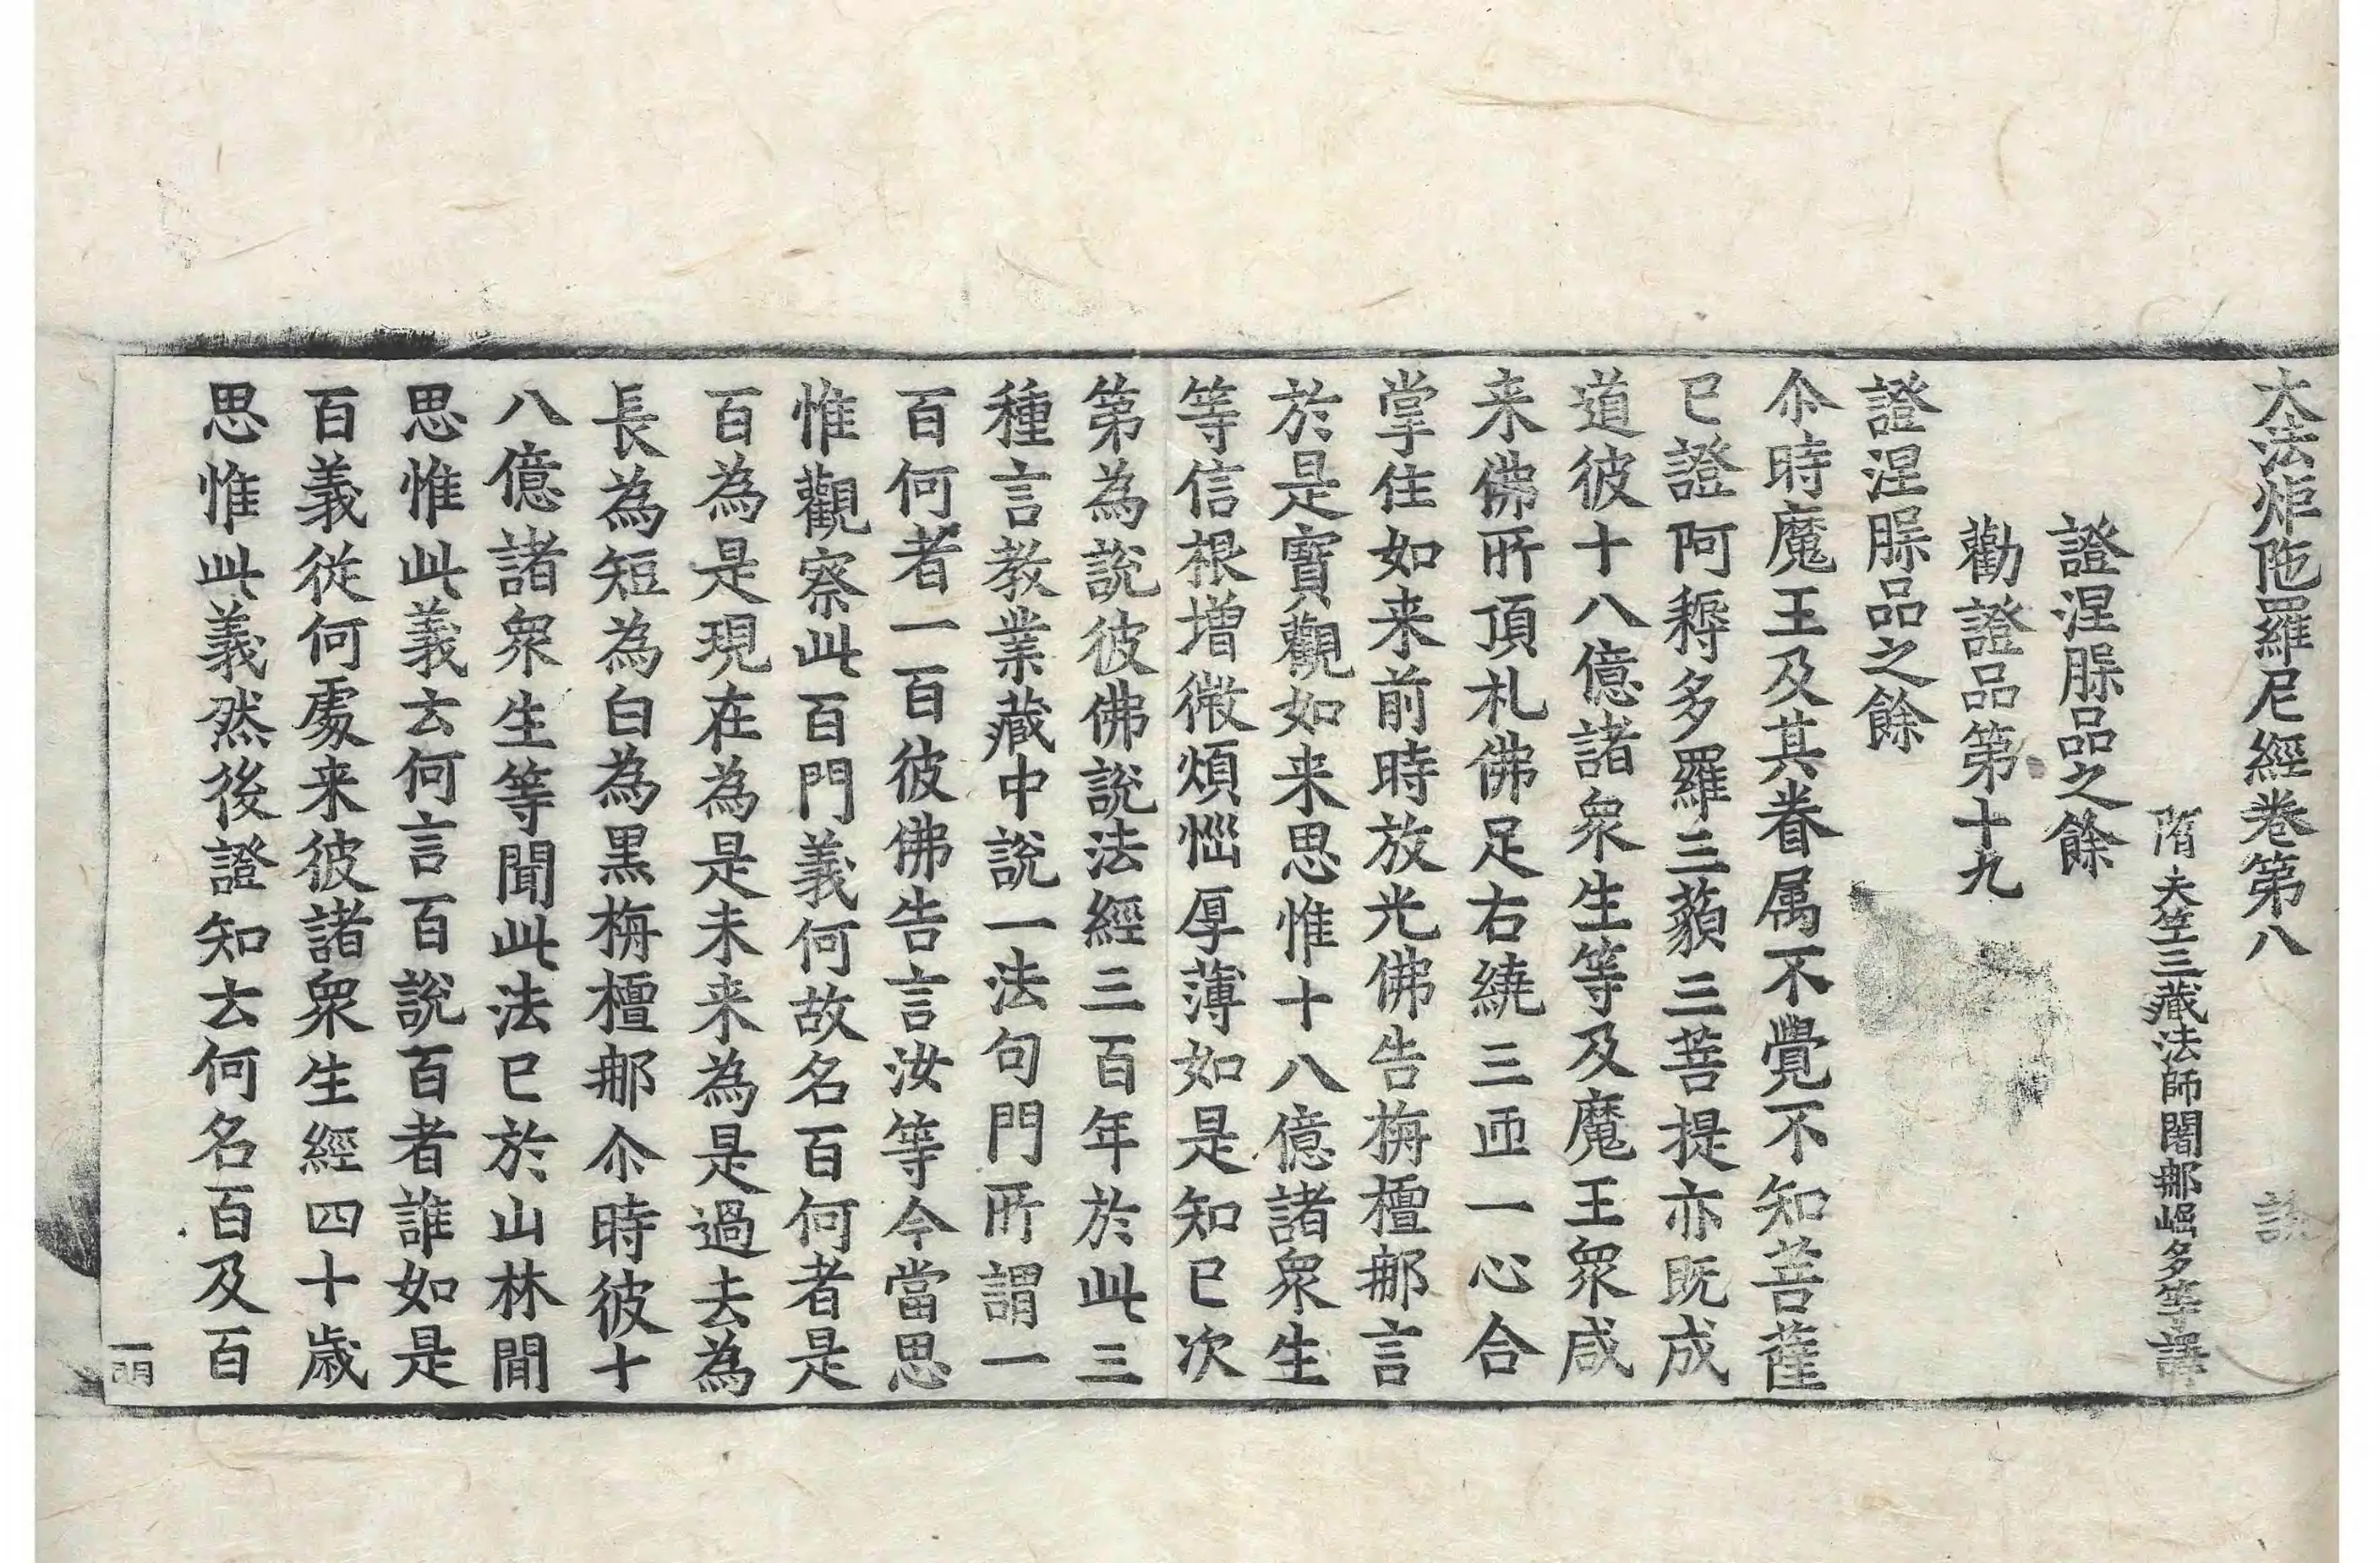 大法炬陁羅尼經卷第八
隋天竺三藏法師闍䢴崛多等譯
證涅腺品之餘
勸證品第十九
證涅腺品之餘
尒時魔王及其眷属不覺不知菩薩
已證阿耨多羅三藐三菩提亦既成
道彼十八億諸衆生等及魔王衆咸
来佛所頂礼佛足右繞三帀一心合
掌住如来前時放光佛告栴檀䢴言
於是寳觀如来思惟十八億諸衆生
等信根增微煩惱厚薄如是知已次
第為說彼佛說法經三百年於此三
種言教業藏中說一法句門所謂一
百何者一百彼佛告言汝等今當思
惟觀察此百門義何故名百何者是
百為是現在為是未来為是過去為
長為短為白為黒栴檀䢴尒時彼十
八億諸衆生等聞此法已於山林間
思惟此義云何言百說百者誰如是
百義従何處来彼諸衆生經四十歳
思惟此義然後證知云何名百及百